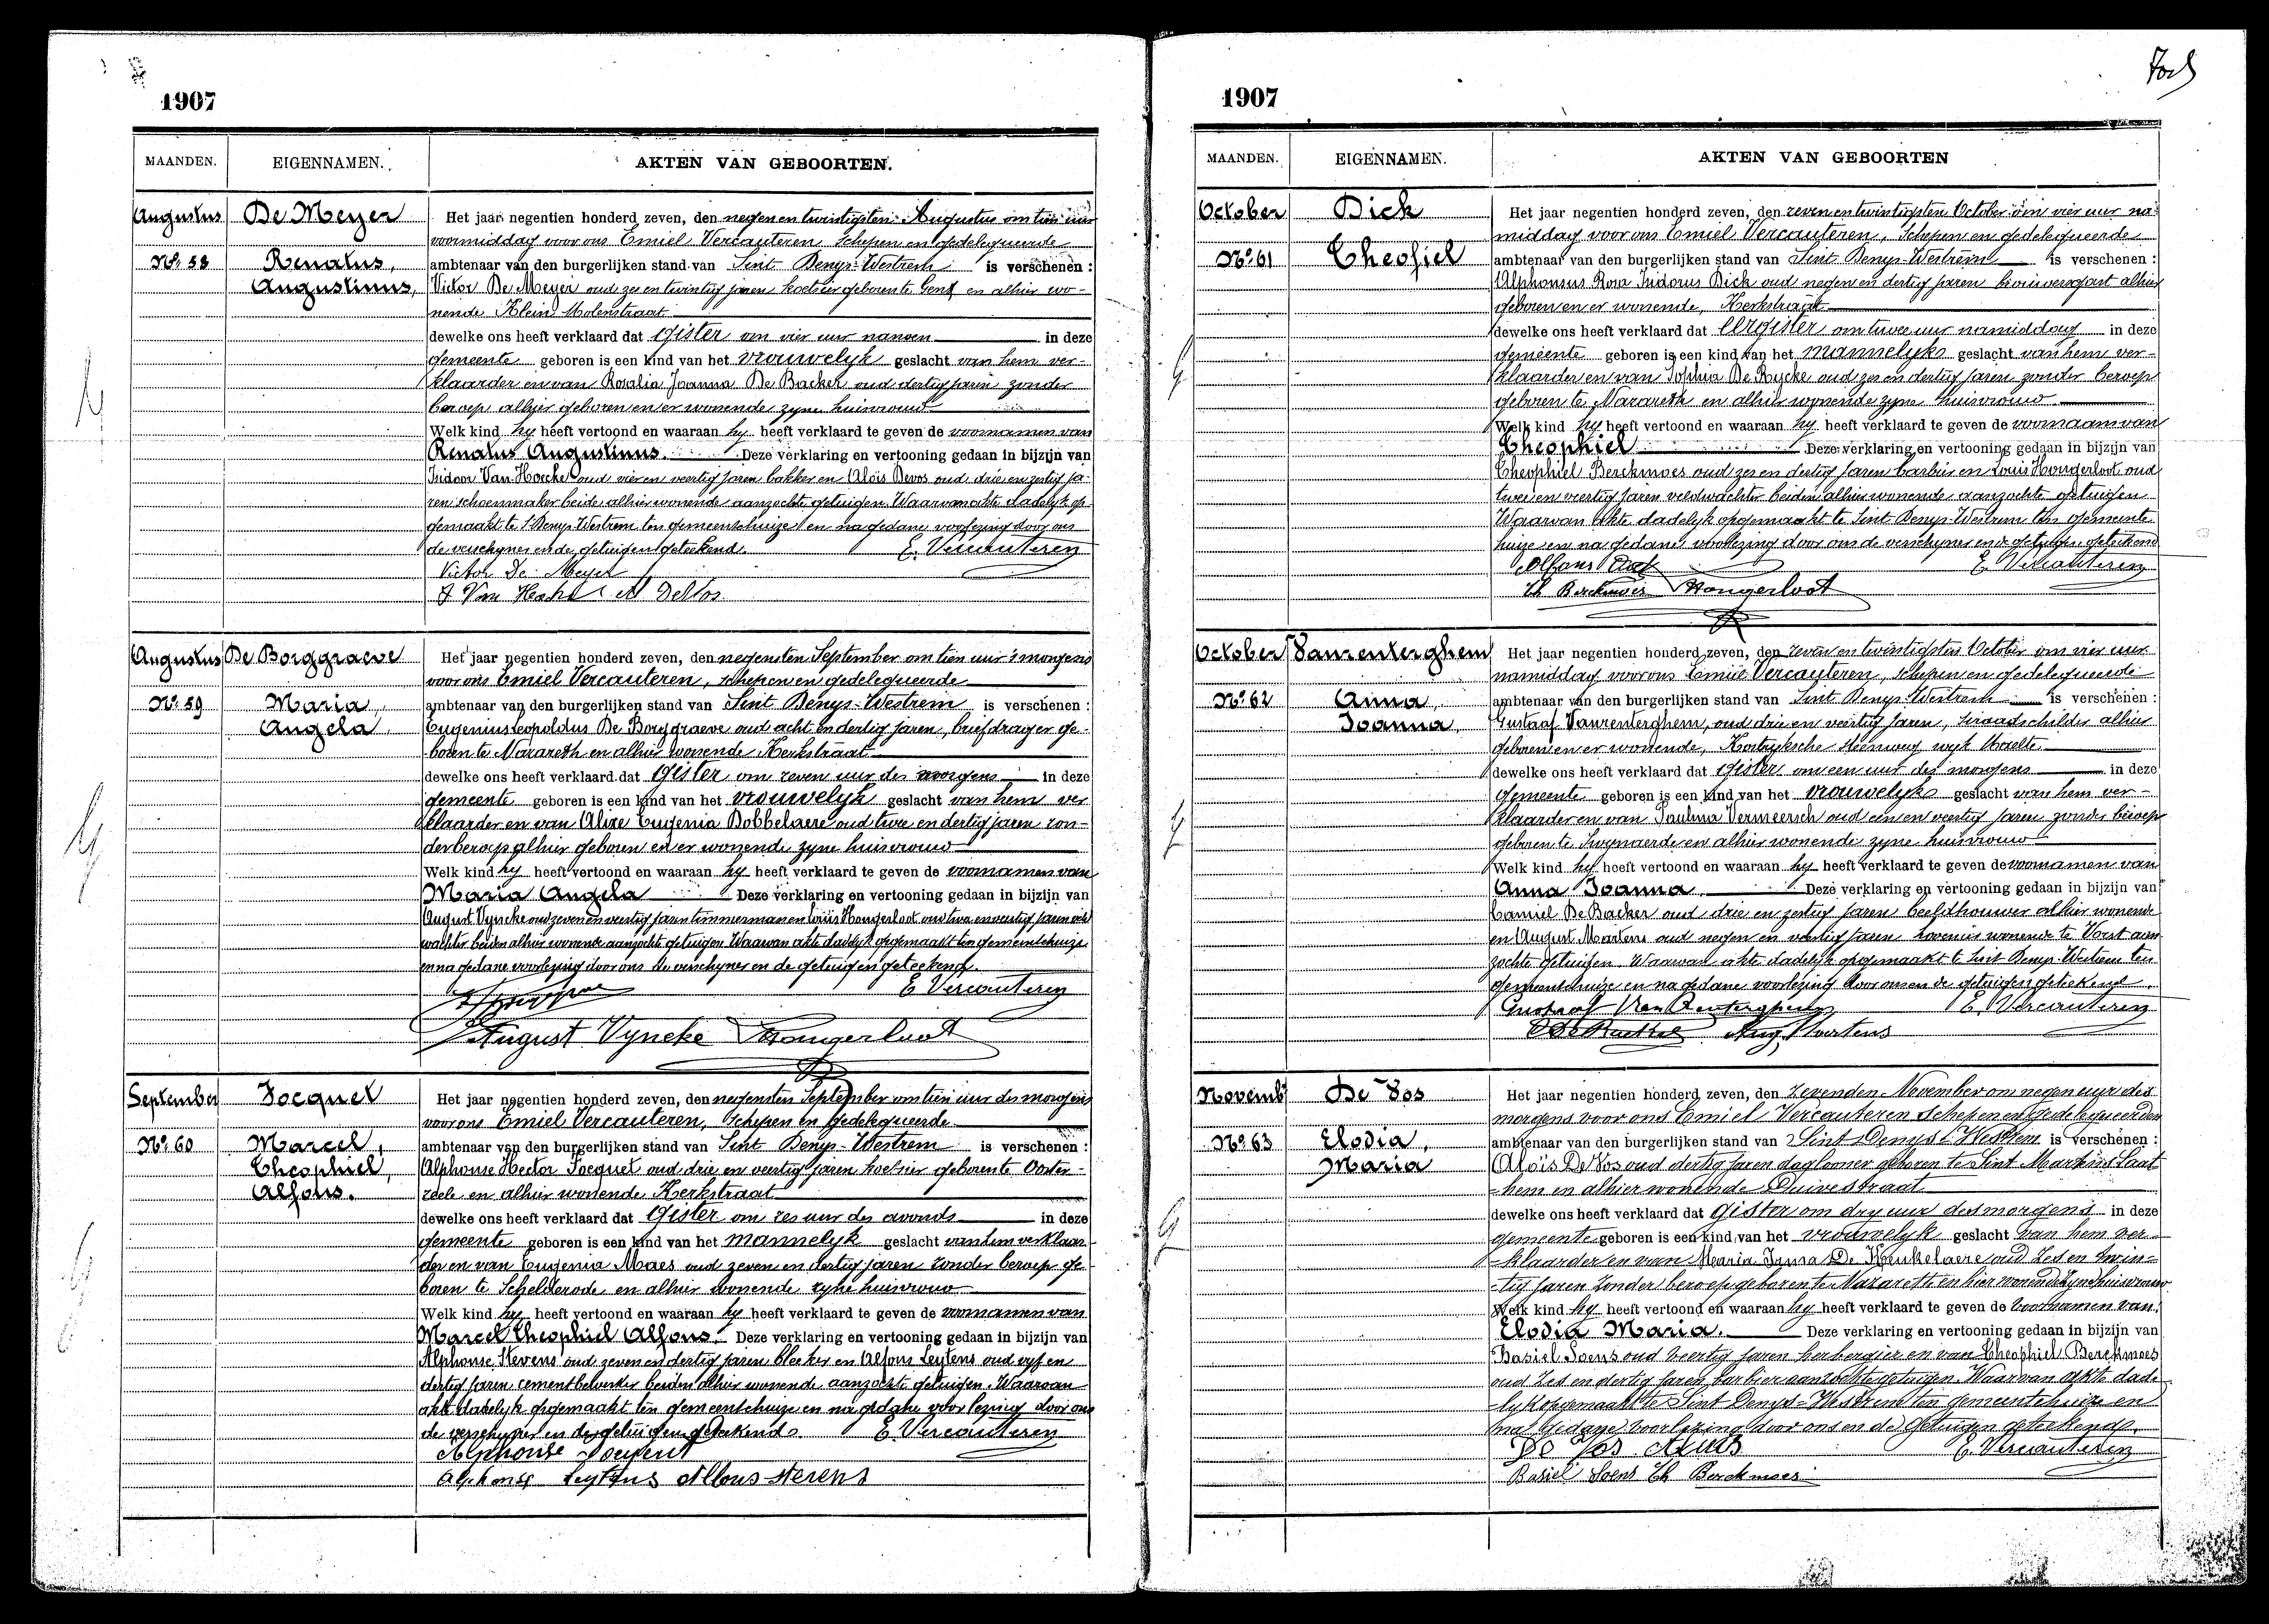 1907
MAANDEN. EIGENNAMEN. AKTEN VAN GEBOORTEN.
Augustus De Meyer Het jaar negentien honderd zeven, den negen en twintigsten Augustus om tien uur
voormiddag voor ons Emiel Vercauteren, Schepen en gedelegueerde
No. 58 Renatus, ambtenaar van den burgerlijken stand van Sint Denys-Westrem is verschenen :
Augustinus, Victor De Meyer oud zes en twintig jaren koetsier geboren te Gent en alhier wo-
nende Klein Molenstraat
dewelke ons heeft verklaard dat gister om vier uur nanoen in deze
gemeente geboren is een kind van het vrouwelyk geslacht van hem ver-
klaarder en van Rosalia Joanna De Backer oud dertig jaren zonder
beroep alhier geboren en er wonende zyne huisvrouw
Welk kind hy heeft vertoond en waaraan hy heeft verklaard te geven de voornamen van
Renatus Augustinus. Deze verklaring en vertooning gedaan in bijzijn van
Isidoor Van Hoecke oud vier en veertig jaren bakker en Aloïs Devos oud drie en zestig ja-
ren schoenmaker beide alhier wonende aanzochte getuigen. Waarvan akte dadelyk op-
gemaakt te St Denys-Westrem ten gemeentehuize en na gedane voorlezing door ons
de verschyner en de getuigen geteekend. E. Vercauteren
Victor De Meyer
A DeVos
Augustus De Borggraeve Het jaar negentien honderd zeven, den negensten September om tien uur 's morgens
voor ons Emiel Vercauteren, schepen en gedelegueerde
No. 59 Maria, ambtenaar van den burgerlijken stand van Sint Denys-Westrem is verschenen :
Angela. Eugenius Leopoldus De Borggraeve oud acht en dertig jaren, briefdrager ge-
boren te Nazareth en alhier wonende Kerkstraat
dewelke ons heeft verklaard dat gister om zeven uur des morgens in deze
gemeente geboren is een kind van het vrouwelyk geslacht van hem ver
klaarder en van Alixe Eugenia Bobbelaere oud twee en dertig jaren zon-
der beroep alhier geboren en er wonende zyne huisvrouw
Welk kind hy heeft vertoond en waaraan hy heeft verklaard te geven de voornamen van
Maria Angela Deze verklaring en vertooning gedaan in bijzijn van
August Vyncke oud zeven en veertig jaren timmerman en Louis Hongerloot oud twee en veertig jaren veld
wachter beiden alhier wonende aanzochte getuigen Waarvan akte dadelyk opgemaakt ten gemeentehuize
en na gedane voorlezing door ons de verschyner en de getuigen geteekend.
E Vercauteren
August Vyncke Hongerloot
September Focquet Het jaar negentien honderd zeven, den negensten September om tien uur des morgens
voor ons Emiel Vercauteren, Schepen en gedelegueerde
No. 60 Marcel, ambtenaar van den burgerlijken stand van Sint Denys-Westrem is verschenen :
Theophiel, Alphonse Hector Focquet oud drie en veertig jaren koetsier geboren te Ooster-
Alfons. zeele en alhier wonende Kerkstraat
dewelke ons heeft verklaard dat gister om zes uur des avonds in deze
gemeente geboren is een kind van het mannelyk geslacht van hem verklaar
der en van Eugenia Maes oud zeven en dertig jaren zonder beroep ge
boren te Schelderode en alhier wonende zyne huisvrouw
Welk kind hy heeft vertoond en waaraan hy heeft verklaard te geven de voornamen van
Marcel Theophiel Alfons. Deze verklaring en vertooning gedaan in bijzijn van
Alphonse Stevens oud zeven en dertig jaren bleeker en Alfons Leytens oud vyf en
dertig jaren cementbewerker beiden alhier wonende aanzochte getuigen. Waarvan
akte dadelyk opgemaakt ten gemeentehuize en na gedane voorlezing door ons
de verschyner en de getuigen geteekend. E. Vercauteren
Alphonse Focquet
Alphonse Leytens Alfons Stevens
1907
MAANDEN. EIGENNAMEN. AKTEN VAN GEBOORTEN
October Dick Het jaar negentien honderd zeven, den zeven en twintigsten October om vier uur na-
middag voor ons Emiel Vercauteren, Schepen en gedelegueerde
No. 61 Theofiel ambtenaar van den burgerlijken stand van Sint Denys-Westrem is verschenen :
Alphonsus Rosa Isidorus Dick oud negen en dertig jaren brouwersgast alhier
geboren en er wonende, Kerkstraat
dewelke ons heeft verklaard dat eergister om twee uur namiddag in deze
gemeente geboren is een kind van het mannelyk geslacht van hem ver-
klaarder en van Sophia De Rycke oud zes en dertig jaren zonder beroep
geboren te Nazareth en alhier wonende zyne huisvrouw
Welk kind hy heeft vertoond en waaraan hy heeft verklaard te geven de voornaam van
Theophiel Deze verklaring en vertooning gedaan in bijzijn van
Theophiel Berckmoes oud zes en dertig jaren barbier en Louis Hongerloot oud
twee en veertig jaren veldwachter beiden alhier wonende aanzochte getuigen
Waarvan akte dadelyk opgemaakt te Sint Denys-Westrem ten gemeente
huize en na gedane voorlezing door ons de verschyner en de getuigen geteekend
Alfons Dick E Vercauteren
Th Berckmoes Hongerloot
October Vanrenterghem Het jaar negentien honderd zeven, den zeven en twintigsten October om vier uur
namiddag voor ons Emiel Vercauteren, schepen en gedelegueerde
No. 62 Anna, ambtenaar van den burgerlijken stand van Sint Denys-Westrem is verschenen :
Joanna. Gustaaf Vanrenterghem, oud drie en veertig jaren, sieraadschilder alhier
geboren en er wonende, Kortryksche steenweg wyk Maelte
dewelke ons heeft verklaard dat gister om een uur des morgens in deze
gemeente geboren is een kind van het vrouwelyk geslacht van hem ver-
klaarder en van Paulina Vermeersch oud een en veertig jaren zonder beroep
geboren te Swynaerde en alhier wonende zyne huisvrouw
Welk kind hy heeft vertoond en waaraan hy heeft verklaard te geven de voornamen van
Anna Joanna Deze verklaring en vertooning gedaan in bijzijn van
Camiel De Backer oud drie en zestig jaren beeldhouwer alhier wonende
en August Martens oud negen en veertig jaren hovenier wonende te Vorst aan
zochte getuigen. Waarvan akte dadelyk opgemaakt te Sint Denys-Westrem ten
gemeentehuize en na gedane voorlezing door ons en de getuigen geteekend.
Gustaaf Van Renterghem E. Vercauteren
Aug. Martens
Novemb De Vos Het jaar negentien honderd zeven, den zevenden November om negen uur des
morgens voor ons Emiel Vercauteren Schepen en Gedelegueerden
No. 63 Elodia, ambtenaar van den burgerlijken stand van Sint Denys-Westrem is verschenen :
Maria Aloïs De Vos oud dertig jaren daglooner geboren te Sint Martens Laat
=hem en alhier wonende Duivestraat
dewelke ons heeft verklaard dat gister om dry uur des morgens in deze
gemeente geboren is een kind van het vrouwelyk geslacht van hem ver-
=klaarder en van Maria Irma De Keukelaere oud zes en twin=
=tig jaren zonder beroep geboren te Nazareth en hier wonende zyne huisvrouw
Welk kind hy heeft vertoond en waaraan hy heeft verklaard te geven de voornamen van
Elodia Maria. Deze verklaring en vertooning gedaan in bijzijn van
Basiel Soens oud veertig jaren herbergier en van Theophiel Berckmoes
oud zes en dertig jaren barbier aanzochte getuigen Waarvan akte dade
lyk opgemaakt te Sint Denys=Westrem ten gemeentehuize en
na gedane voorlezing door ons en de getuigen geteekend.
De Vos Aloïs E. Vercauteren
Basiel Soens Th Berckmoes